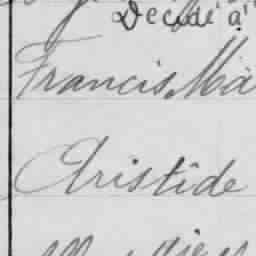 Décédé à
Francis, Ma
Aristide